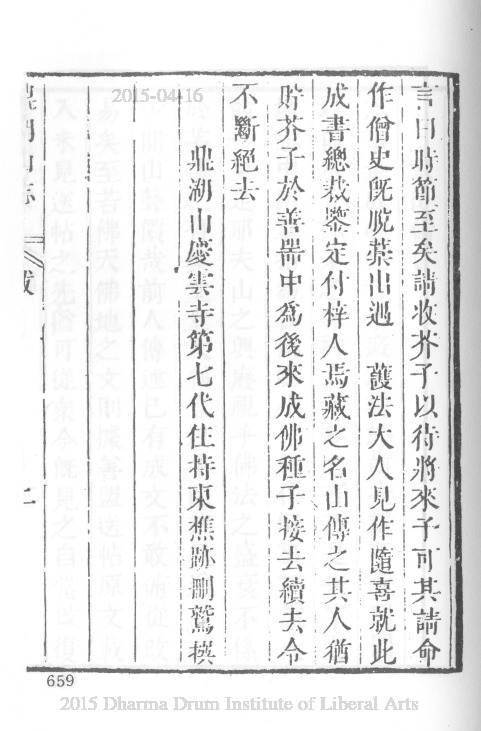 言曰時節至矣請收芥子以待將來予可其請命
作僧史旣脫藁出過　護法大人見作隨喜就此
成書總裁鑒定付梓人焉藏之名山傳之其人猶
貯芥子於善器中爲後來成佛種子接去續去令
不斷絕去
鼎湖山慶雲寺第七代住持東樵跡刪鷲撰
鼎湖山志
跋
二
2015-04-16
659
2015 Dharma Drum Institute of Liberal Arts